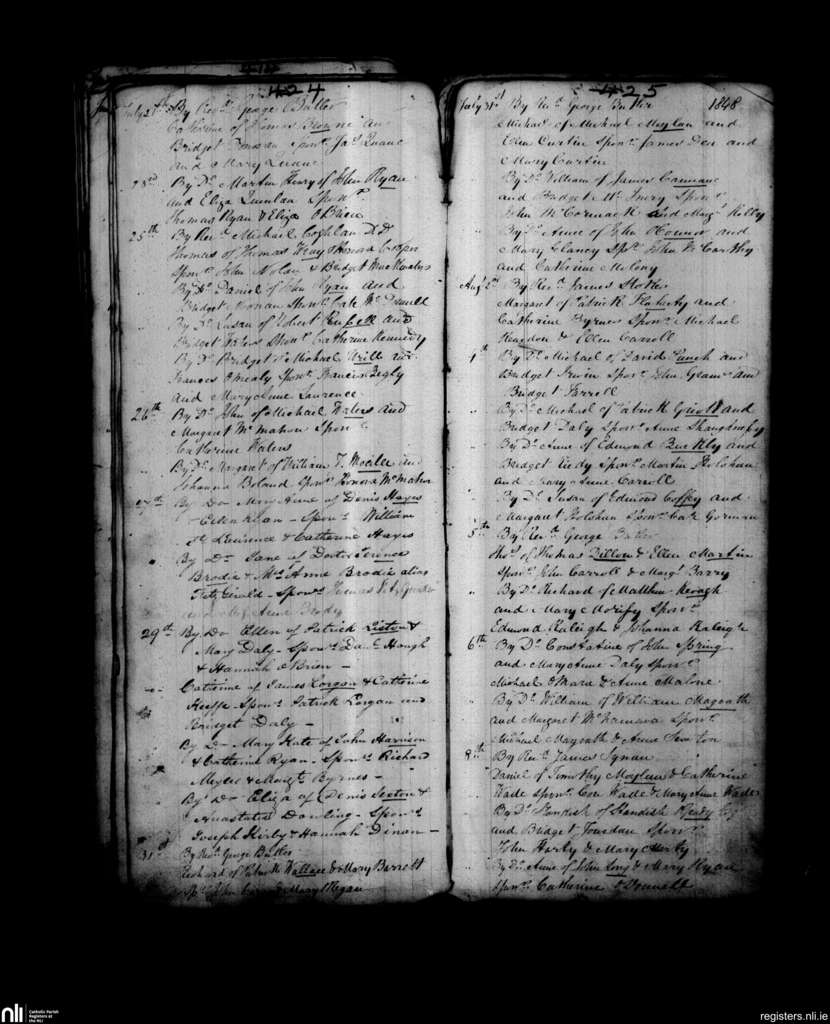 424
July 21st By Revd. George Butler
Catherine of Thomas Browne and
Bridget Spont. Jas. Quane
and Mary Quane
23rd By Do. Martin Henry of John Ryan
and Eliza Quinlan Spont.
Thomas Ryan & Eliza O'Brien
25th By Revd. Michael Coghlan D.D.
Thomas of Thomas & Honora
Spont. John Nolan & Bridget
By Do. Daniel of John Ryan and
Bridget Honan Spont. Cate
By Do. Susan of Robert Russell and
Bridget Waters Spont. Catherine Kennedy
By Do. Bridget of Michael and
Frances Spont. Francis
and Mary Anne Laurence
26th By Do. John of Michael Waters and
Margaret McMahon Spont.
Catherine Waters
By Do. Margaret of William T. and
Johanna Boland Spont. Honora McMahon
27th By Do Mary Anne of Denis Hayes
Ellen Ryan - Spont. William
St Laurence & Catherine Hayes
By Do Jane of Doctor Terence
Brodie & Mrs. Anne Brodie alias
Fitzgerald - Spont. Thomas
Anne Brody
29th By Do Ellen of Patrick Liston &
Mary Daly - Spont. Hough
& Hannah O'Brien -
Catherine of James Lorgan & Catherine
Keeffe - Spont. Patrick Lorgan and
Bridget Daly -
By Do Mary Kate of John Harrison
& Catherine Ryan - Spont. Richard
& Margt. Byrnes -
By Do Eliza of Denis Sexton &
Anastatia Dowling - Spont.
Joseph Kirby & Hannah Dinan -
31st By Revd. George Butler
Richard of Patrick Wallace & Mary Barrett
Spt. John & Mary Hogan
425
July 31st By Revd. George Butler 1848
Michael of Michael Moylan and
Ellen Curtin Spont. James Dea and
Mary Curtin
" By Do. William of James
and Bridget Spont.
John McCormack and Margt. Kelly
" By Do. Anne of John O'Connor and
Mary Clancy Spt. John McCarthy
and Catherine
Augt 2d By Revd. James Stokes
Margaret of Patrick Flaherty and
Catherine Byrnes Spont. Michael
Reardon & Ellen Carroll
4th By Do. Michael of David Lynch and
Bridget Irwin Spont. John and
Bridget Farrell
" By Do. Michael of Patrick and
Bridget Daly Spont. Anne Shaughnessy
" By Do. Anne of Edmond Buckly and
Bridget Spont. Martin Holohan
and Mary Anne Carroll
" By Do. Susan of Edmond Coffey and
Margaret Holohan Spont. Cate Gorman
5th By Revd. George Butler
Thos. of Thomas Dillon & Ellen Martin
Spont. John Carroll & Margt. Barry
" By Do. Richard of Matthew Keough
and Mary Spont.
Edmond Raleigh & Johanna Raleigh
6th By Do. Constantine of John Spring
and Mary Anne Daly Spont.
Michael O'Mara & Anne Malone
" By Do. William of William Magrath
and Margaret McNamara Spont.
Michael Magrath & Anne Newton
8th By Revd. James Synan
Daniel of Timothy Moylan & Catherine
Wade Spont. Con Wade & Mary Anne Wade
" By Do. Standish of Standish
and Bridget Jourdan Spont.
John Harty & Mary
" By Do. Anne of John Long & Mary Ryan
Spont. Catherine O'Donnell
nli
Catholic Parish
Registers at
the NLI
registers.nli.ie